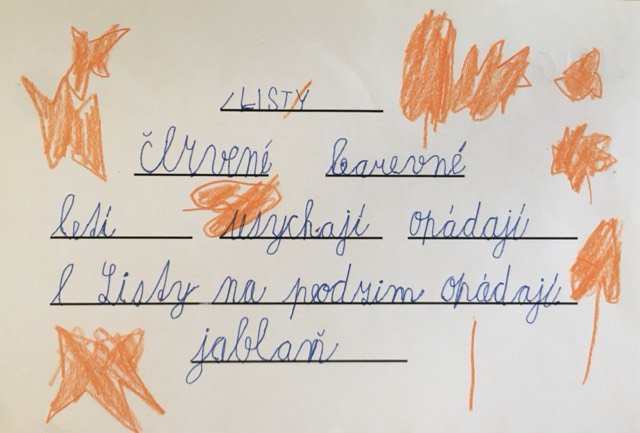 LISTY
Červené barevné
letí usychají opádají
Listy na podzim opádají
jablaň